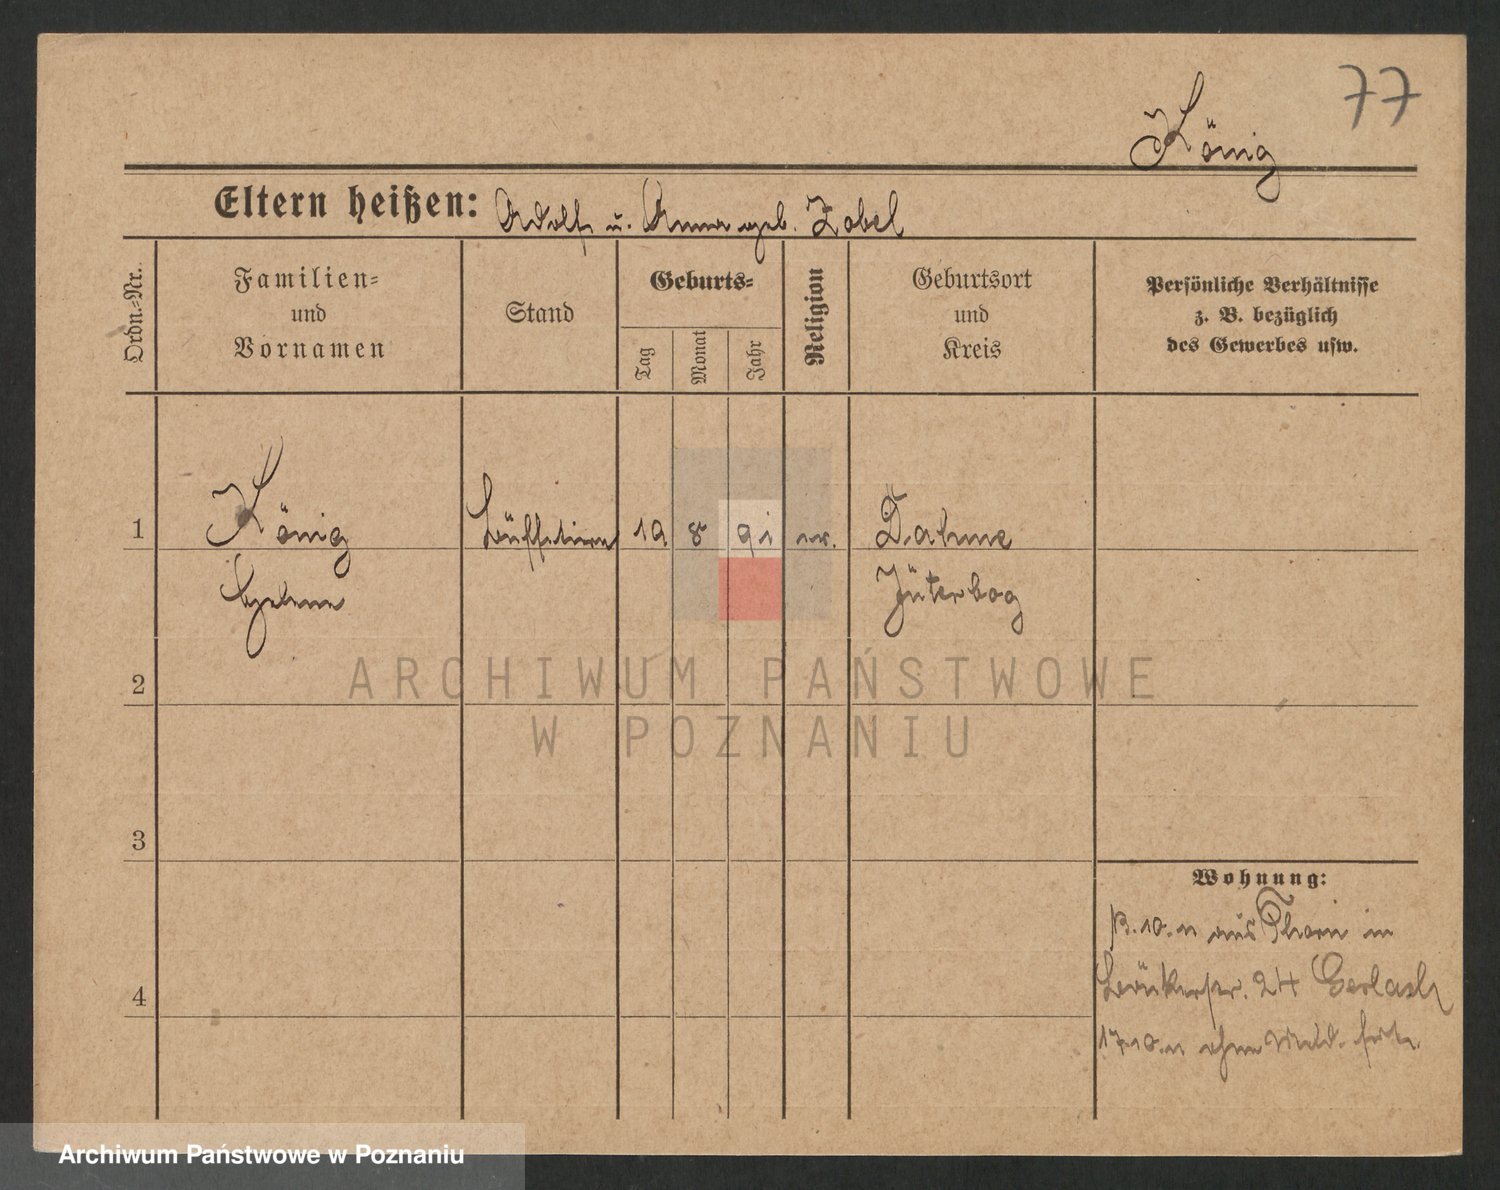 77
König
Eltern heißen: Adolf u. Anna geb. Zobel
Ordn.-Nr.
Familien-
und
Vornamen
Stand
Geburts-
Tag
Monat
Jahr
Religion
Geburtsort
und
Kreis
Persönliche Verhältnisse
z. B. bezüglich
des Gewerbes usw.
1 König Büffetiere 19 8 91 ev. Dahme
Helene Jüterbog
ARCHIWUM PAŃSTWOWE
W POZNANIU
2
3
4
Wohnung:
13.10.11 aus Thorn in
24 Gerlach
17.10.11 ohne Meld. fort.
Archiwum Państwowe w Poznaniu